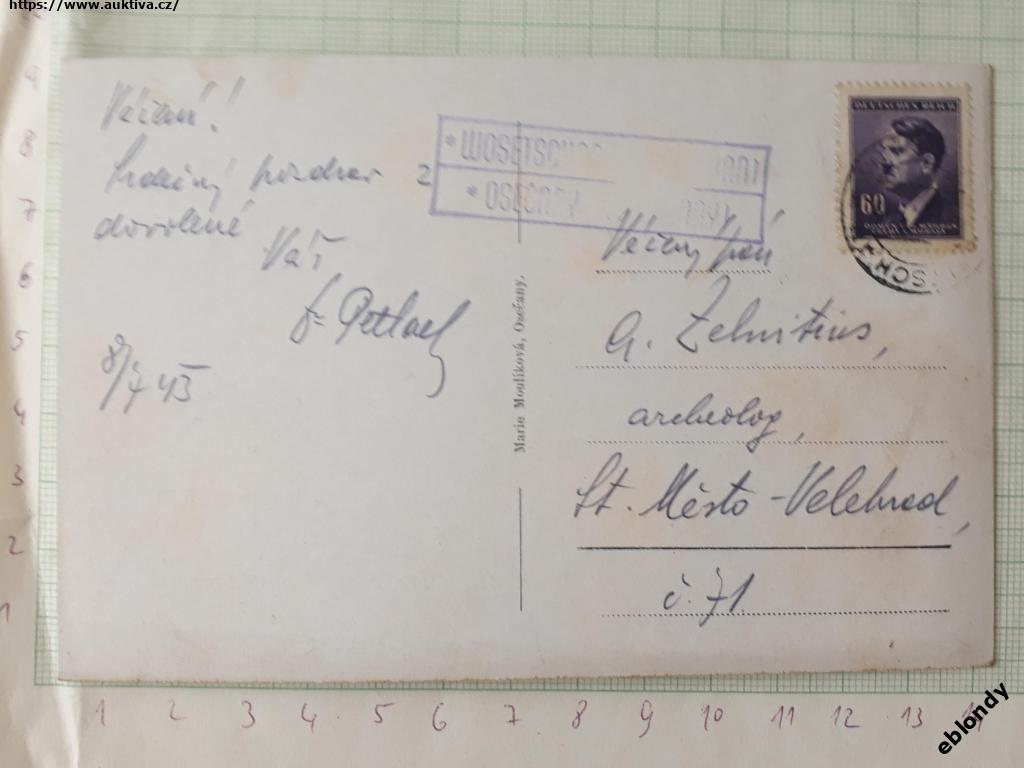 https://www.auktiva.cz/
Vážený!
Srdečný pozdrav z
dovolené
Váš
8/7 43
* WOSETSCH
* OSEČANY
DEUTSCHES REICH
60
BÖHMEN UND MÄHREN
ČECHY A MORAVA
SCH
Marie Moulíková, Osečany.
Vážený pan
A. Zelnitius,
archeolog,
St. Město - Velehrad,
č. 71
9
8
7
6
5
4
3
2
1
1 2 3 4 5 6 7 8 9 10 11 12 13 14
eblondy